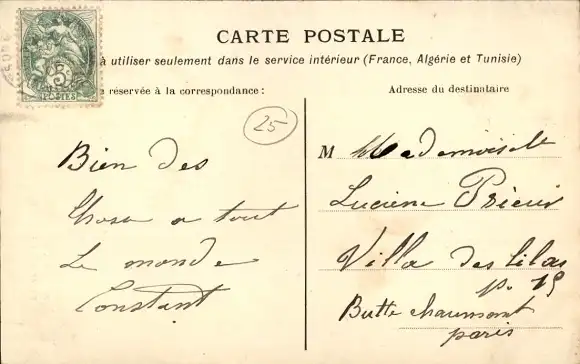 CARTE POSTALE
à utiliser seulement dans le service intérieur (France, Algérie et Tunisie)
e réservée à la correspondance :
Adresse du destinataire
5
POSTES
25
Bien des
Chose a tout
Le monde
Constant
M Mademoiselle
Lucienne Prieur
Villa des lilas
p. 19
Butte chaumont
paris